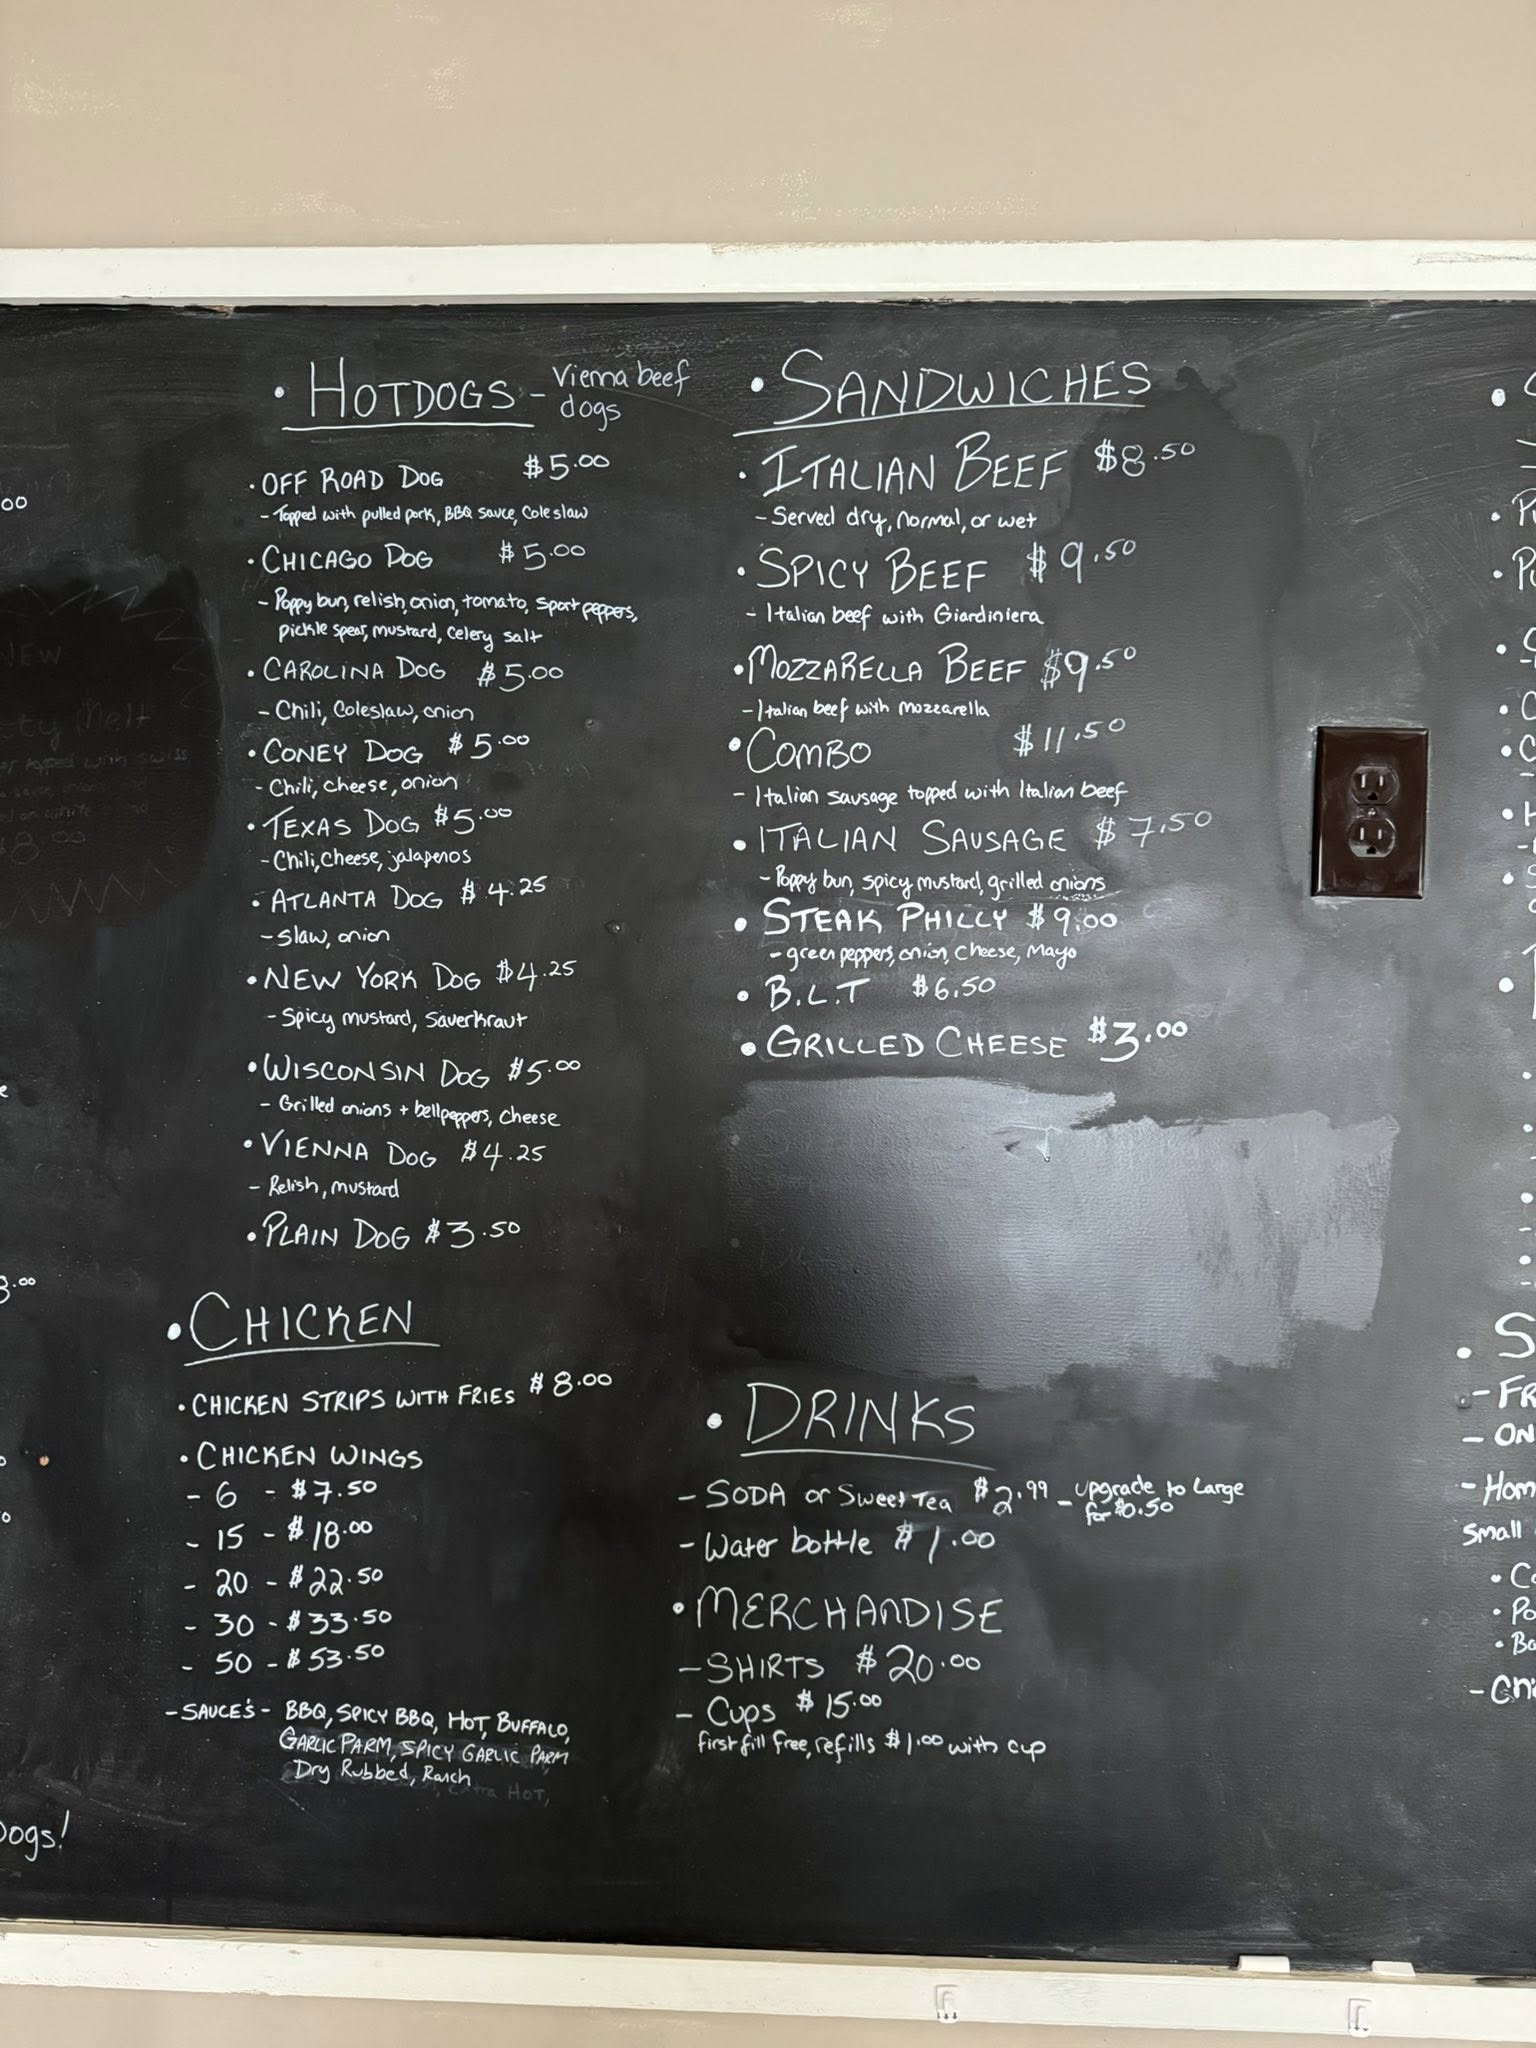 • HOTDOGS - Vienna beef
dogs
• OFF ROAD DOG $5.00
- Topped with pulled pork, BBQ sauce, Coleslaw
• CHICAGO DOG $5.00
- Poppy bun, relish, onion, tomato, sport peppers,
pickle spear, mustard, celery salt
• CAROLINA DOG $5.00
- Chili, Coleslaw, onion
• CONEY DOG $5.00
- Chili, cheese, onion
• TEXAS DOG $5.00
- Chili, Cheese, jalapenos
• ATLANTA DOG $4.25
- Slaw, onion
• NEW YORK DOG $4.25
- Spicy mustard, Sauerkraut
• WISCONSIN DOG $5.00
- Grilled onions + bellpeppers, cheese
• VIENNA DOG $4.25
- Relish, mustard
• PLAIN DOG $3.50
• CHICKEN
• CHICKEN STRIPS WITH FRIES $8.00
• CHICKEN WINGS
- 6 - $7.50
- 15 - $18.00
- 20 - $22.50
- 30 - $33.50
- 50 - $53.50
- SAUCE'S - BBQ, SPICY BBQ, HOT, BUFFALO,
GARLIC PARM, SPICY GARLIC PARM
Dry Rubbed, Ranch
Extra HOT,
• SANDWICHES
• ITALIAN BEEF $8.50
- Served dry, normal, or wet
• SPICY BEEF $9.50
- Italian beef with Giardiniera
• MOZZARELLA BEEF $9.50
- Italian beef with mozzarella
• COMBO $11.50
- Italian sausage topped with Italian beef
• ITALIAN SAUSAGE $7.50
- Poppy bun, spicy mustard, grilled onions
• STEAK PHILLY $9.00
- green peppers, onion, cheese, Mayo
• B.L.T $6.50
• GRILLED CHEESE $3.00
• DRINKS
- SODA or Sweet Tea $2.99 - upgrade to Large
for $0.50
- Water bottle $1.00
• MERCHANDISE
- SHIRTS $20.00
- Cups $15.00
first fill free, refills $1.00 with cup
NEW
Melt
topped with swiss
8.00
Dogs!
- FR
- ON
- Hom
Small